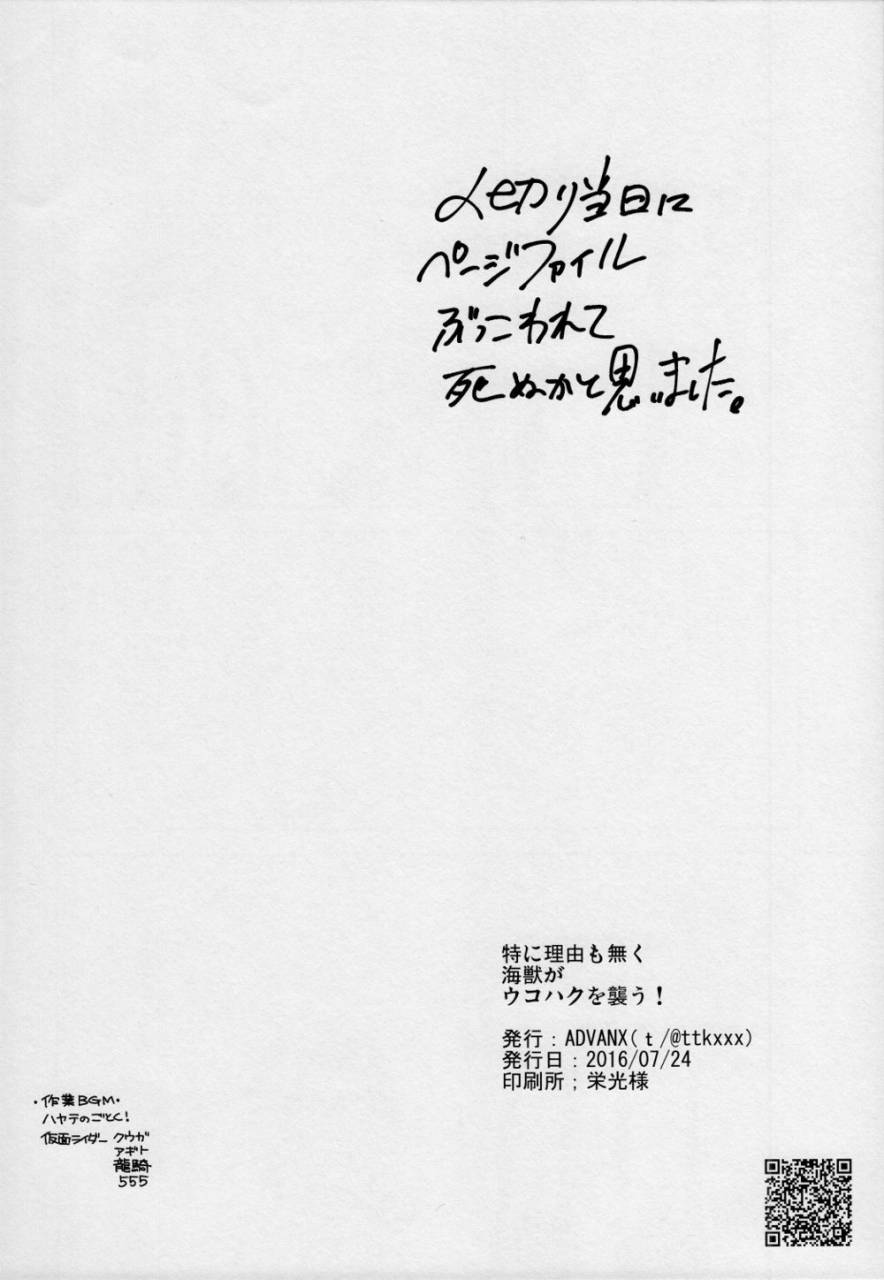 〆切り当日に
ページファイル
ぶっこわれて
死ぬかと思いました。
特に理由も無く
海獣が
ウコハクを襲う！
発行：ADVANX(t/@ttkxxx)
発行日：2016/07/24
印刷所；栄光様
・作業BGM・
ハヤテのごとく！
仮面ライダー クウガ
アギト
龍騎
555